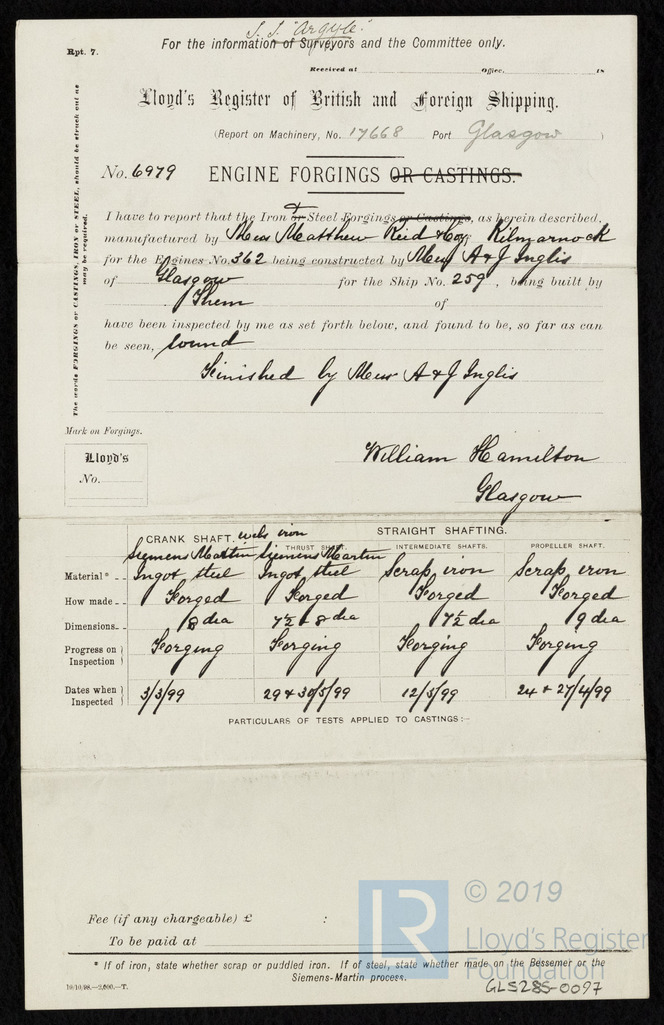 S.S. "Argyle."
Rpt. 7.
For the information of Surveyors and the Committee only.
Received at Office. 18
Lloyd's Register of British and Foreign Shipping.
(Report on Machinery, No. 17668 Port Glasgow )
No. 6979 ENGINE FORGINGS OR CASTINGS.
The words FORGINGS or CASTINGS, IRON or STEEL, should be struck out as may be required.
I have to report that the Iron & or Steel Forgings or Castings, as herein described,
manufactured by Mess Matthew Reid & Coy Kilmarnock
for the Engines No. 362 being constructed by Mess A & J Inglis
of Glasgow for the Ship No. 259, being built by
Them of
have been inspected by me as set forth below, and found to be, so far as can
be seen, sound
Finished by Mess A & J Inglis
Mark on Forgings.
Lloyd's
No.
William Hamilton
Glasgow
CRANK SHAFT. webs iron STRAIGHT SHAFTING.
THRUST SHAFT. INTERMEDIATE SHAFTS. PROPELLER SHAFT.
Siemens Martin Siemens Martin
Material* Ingot steel Ingot steel Scrap iron Scrap iron
How made Forged Forged Forged Forged
Dimensions 8 dia 7½ & 8 dia 7½ dia 9 dia
Progress on Inspection Forging Forging Forging Forging
Dates when Inspected 3/3/99 29 & 30/5/99 12/5/99 24 & 27/4/99
PARTICULARS OF TESTS APPLIED TO CASTINGS:—
Fee (if any chargeable) £ :
To be paid at
* If of iron, state whether scrap or puddled iron. If of steel, state whether made on the Bessemer or the
Siemens-Martin process.
10/10/98.—2,000.—T.
GLS285-0097
LR
© 2019
Lloyd's Register
Foundation